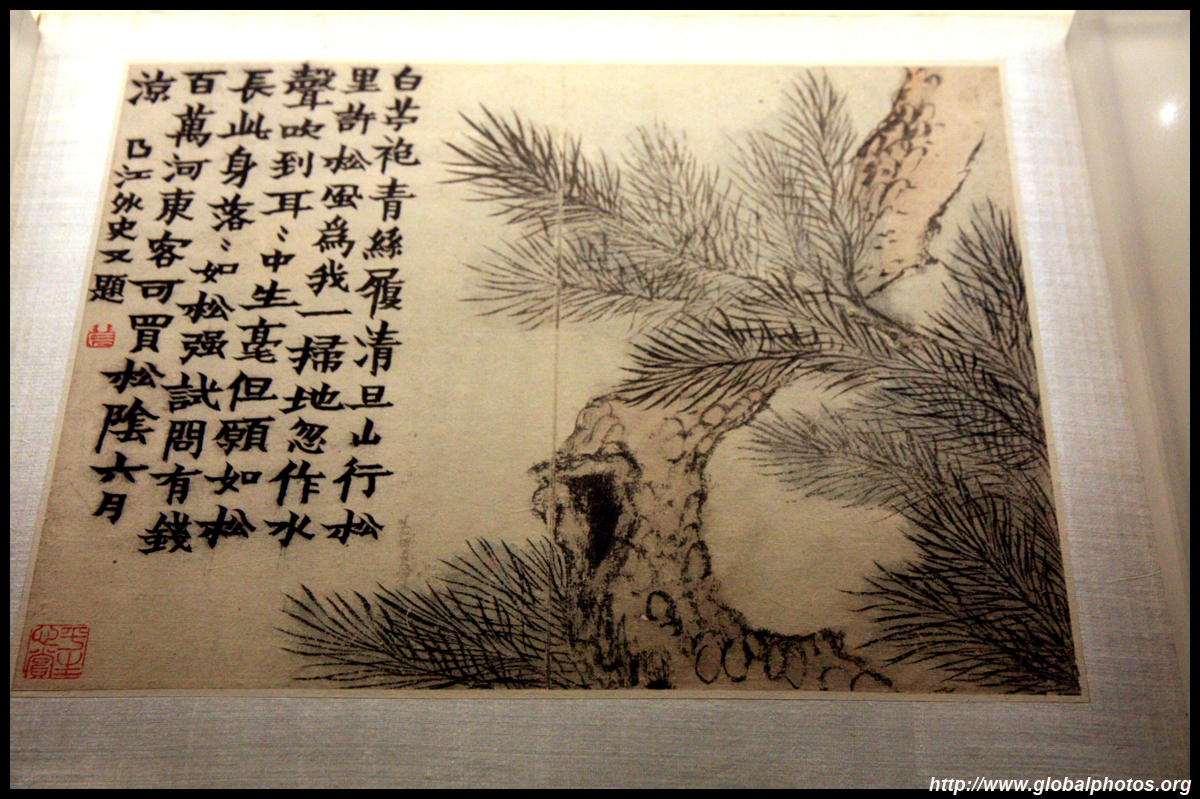 白苧袍青絲履清旦山行松
里許松風為我一掃地忽作水
聲吹到耳〻中生毫但願如松
長此身落〻如松强試問有錢
百萬河東客可買松陰六月
涼 曲江外史又題
平生心賞
http://www.globalphotos.org